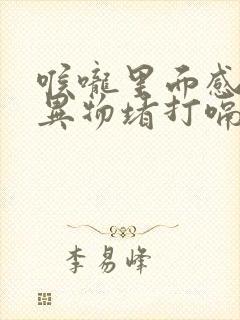 喉咙里而感
异物堵打嗝
李易峰